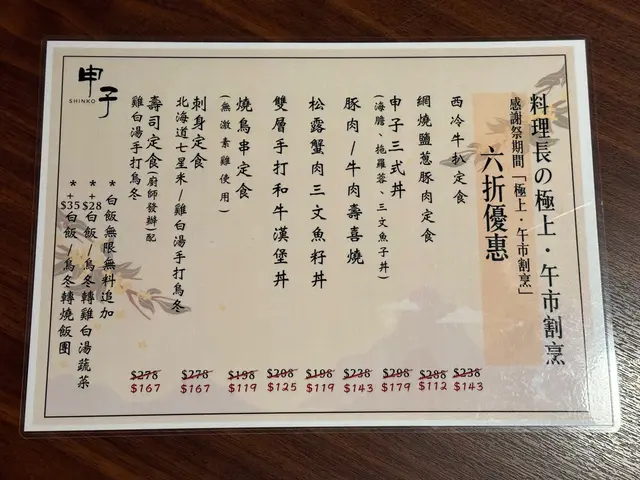 料理長の極上・午市割烹
感謝祭期間「極上・午市割烹」
六折優惠
西冷牛扒定食
$238
$143
網燒鹽蔥豚肉定食
$288
$112
申子三式丼
(海膽、拖羅蓉、三文魚子丼)
$298
$179
豚肉/牛肉壽喜燒
$238
$143
松露蟹肉三文魚籽丼
$198
$119
雙層手打和牛漢堡丼
$208
$125
燒鳥串定食
(無激素雞使用)
$198
$119
刺身定食
北海道七星米/雞白湯手打烏冬
$278
$167
壽司定食(廚師發辦)配
雞白湯手打烏冬
$278
$167
*白飯無限無料追加
*+$28白飯/烏冬轉雞白湯蔬菜
*+$35白飯、烏冬轉燒飯團
申子
SHINKO